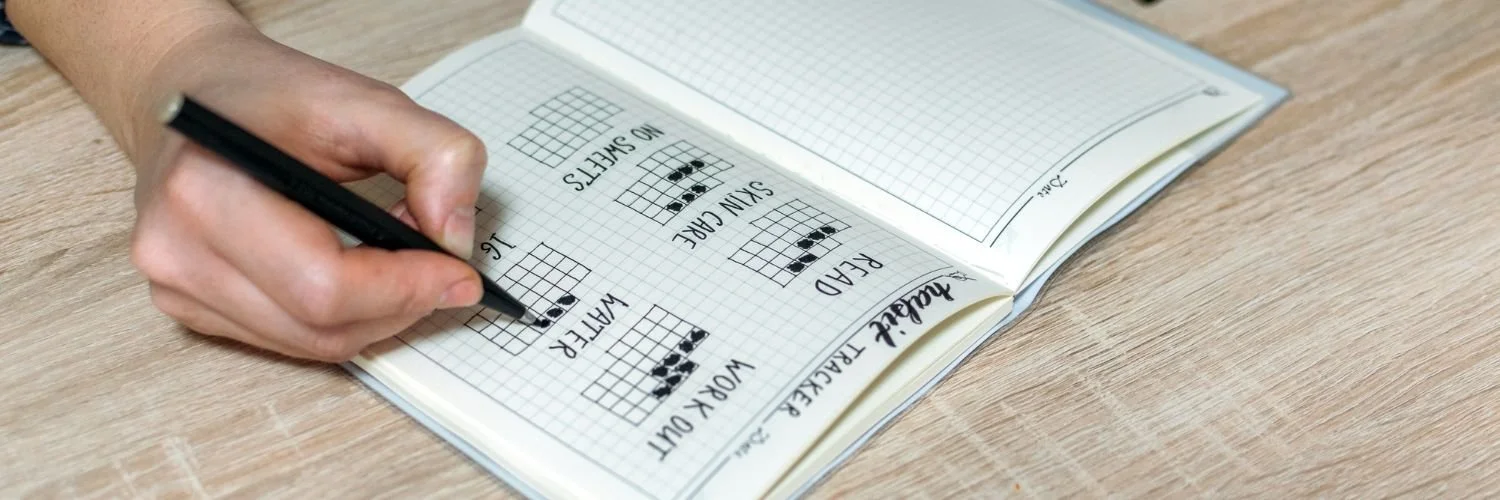 Date
habit TRACKER
READ
WORK OUT
SKIN CARE
WATER
NO SWEETS
IG
Date